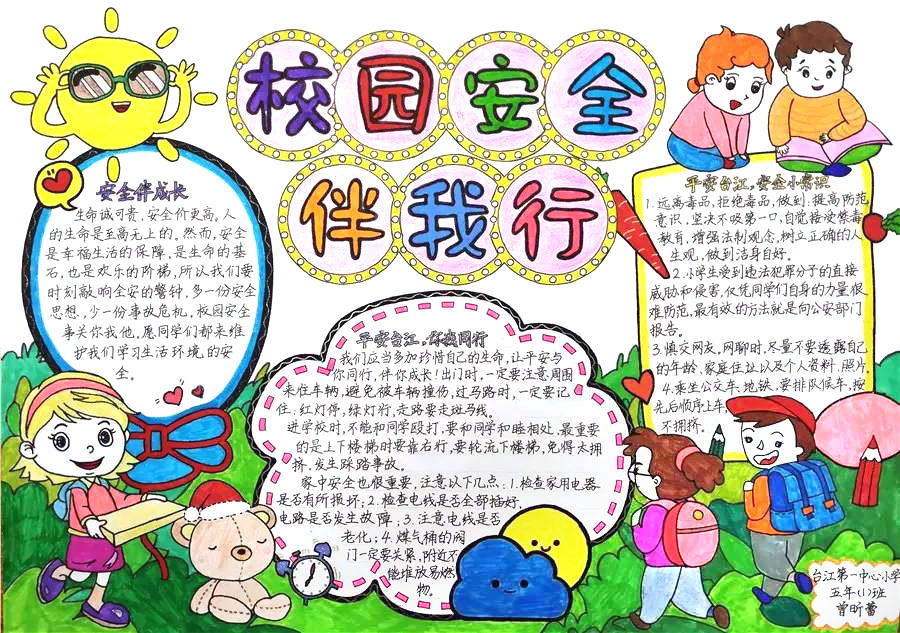 校园安全
伴我行
安全伴成长
生命诚可贵,安全价更高。人
的生命是至高无上的。然而,安全
是幸福生活的保障,是生命的基
石,也是欢乐的阶梯,所以我们要
时刻敲响全安的警钟,多一份安全
思想,少一份事故危机,校园安全
事关你我他,愿同学们都来维
护我们学习生活环境的安
全。
平安台江,你我同行
我们应当多加珍惜自己的生命,让平安与
你同行,伴你成长!出门时,一定要注意周围
来住车辆,避免被车辆撞伤,过马路时,一定要记
住:红灯停,绿灯行,走路要走斑马线。
进学校时,不能和同学殴打,要和同学和睦相处,最重要
的是上下楼梯时要靠右行,要轮流下楼梯,免得太拥
挤,发生踩踏事故。
家中安全也很重要,注意以下几点:1.检查家用电器
是否有所损坏;2.检查电线是否全部插好,
电路是否发生故障;3.注意电线是否
老化;4.煤气桶的阀
门一定要关紧,附近不
能堆放易燃
物。
平安台江,安全小常识
1.远离毒品,拒绝毒品,做到:提高防范
意识,坚决不吸第一口,自觉接受禁毒
教育,增强法制观念,树立正确的人
生观,做到洁身自好。
2.小学生受到违法犯罪分子的直接
威胁和侵害,仅凭同学们自身的力量很
难防范,最有效的方法就是向公安部门
报告。
3.慎交网友,网聊时,尽量不要透露自己
的年龄,家庭住址以及个人资料.照片.
4.乘坐公交车,地铁,要排队候车,按
先后顺序上车,
不拥挤.
台江第一中心小学
五年(1)班
曾昕蕾